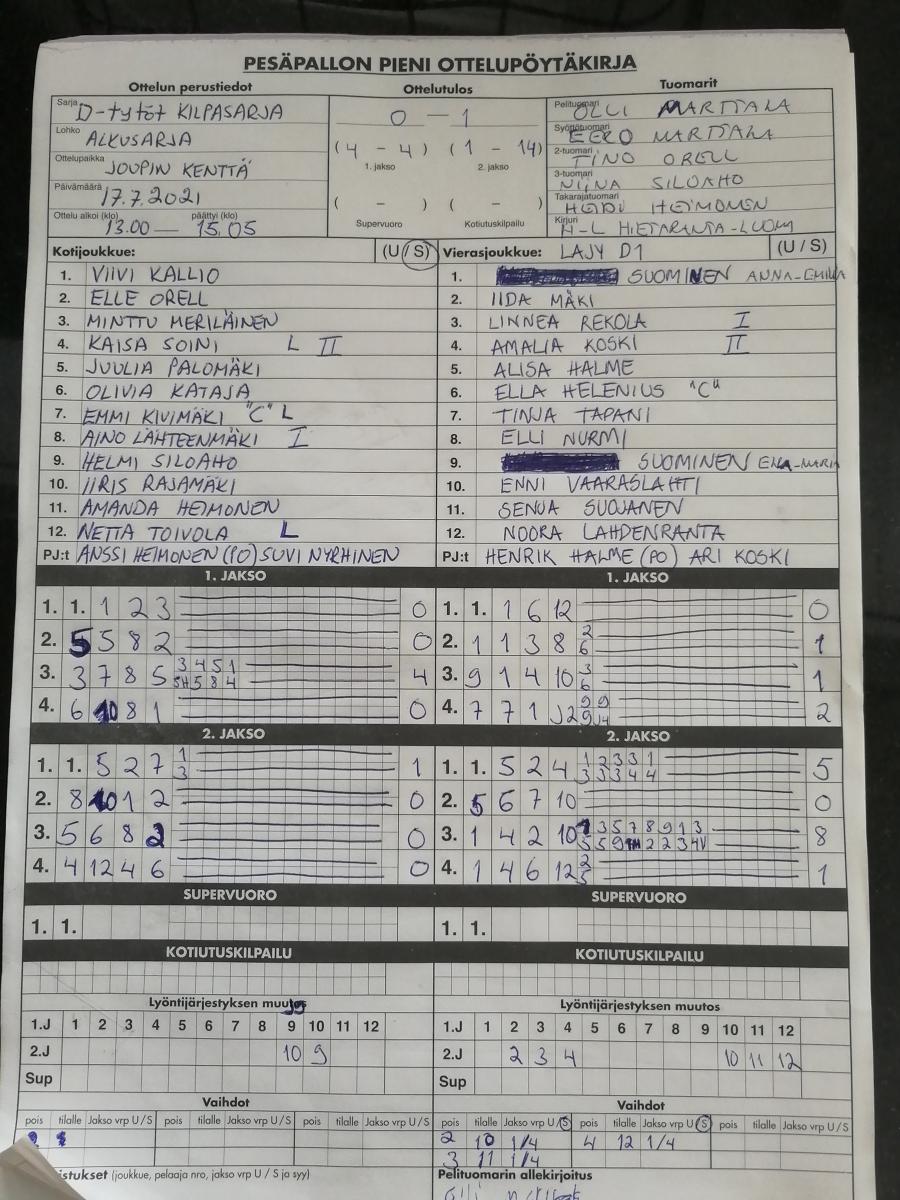 PESÄPALLON PIENI OTTELUPÖYTÄKIRJA
Ottelun perustiedot Ottelutulos Tuomarit
Sarja D-tytöt KILPASARJA
Lohko ALKUSARJA
Ottelupaikka JOUPIN KENTTÄ
Päivämäärä 17.7.2021
Ottelu alkoi (klo) päättyi (klo)
13.00 — 15.05
0 — 1
(4 - 4) (1 - 14)
1. jakso 2. jakso
( - ) ( - )
Supervuoro Kotiutuskilpailu
Pelituomari OLLI MARTTALA
Syöttötuomari EERO MARTTALA
2-tuomari TINO ORELL
3-tuomari NIINA SILOAHO
Takarajatuomari HEIDI HEIMONEN
Kirjuri H-L HIETARANTA-LUOMI
Kotijoukkue: (U / S) Vierasjoukkue: LAJY D1 (U / S)
1. VIIVI KALLIO
2. ELLE ORELL
3. MINTTU MERILÄINEN
4. KAISA SOINI L II
5. JUULIA PALOMÄKI
6. OLIVIA KATAJA
7. EMMI KIVIMÄKI "C" L
8. AINO LÄHTEENMÄKI I
9. HELMI SILOAHO
10. IIRIS RAJAMÄKI
11. AMANDA HEIMONEN
12. NETTA TOIVOLA L
PJ:t ANSSI HEIMONEN (PO) SUVI NYRHINEN
1. SUOMINEN ANNA-EMILIA
2. IIDA MÄKI
3. LINNEA REKOLA I
4. AMALIA KOSKI II
5. ALISA HALME
6. ELLA HELENIUS "C"
7. TINJA TAPANI
8. ELLI NURMI
9. SUOMINEN
10. ENNI VAARASLAHTI
11. SENJA SUOJANEN
12. NOORA LAHDENRANTA
PJ:t HENRIK HALME (PO) ARI KOSKI
1. JAKSO 1. JAKSO
1. 1. 1 2 3 0
2. 5 5 8 2 0
3. 3 7 8 5 3 4 5 1 4
5H 5 8 4
4. 6 10 8 1 0
1. 1. 1 6 12 0
2. 1 1 3 8 2 1
6
3. 9 1 4 10 3 1
6
4. 7 7 1 12 9 9 2
2. JAKSO 2. JAKSO
1. 1. 5 2 7 1 1
3
2. 8 10 1 2 0
3. 5 6 8 2 0
4. 4 12 4 6 0
1. 1. 5 2 4 1 2 3 3 1 5
3 3 3 4 4
2. 5 6 7 10 0
3. 1 4 2 10 1 3 5 7 8 9 1 3 8
4. 1 4 6 12 2 1
5
SUPERVUORO SUPERVUORO
1. 1. 1. 1.
KOTIUTUSKILPAILU KOTIUTUSKILPAILU
Lyöntijärjestyksen muutos Lyöntijärjestyksen muutos
1.J 1 2 3 4 5 6 7 8 9 10 11 12 1.J 1 2 3 4 5 6 7 8 9 10 11 12
2.J 10 9 2.J 2 3 4 10 11 12
Sup Sup
Vaihdot Vaihdot
pois tilalle Jakso vrp U / S pois tilalle Jakso vrp U / S pois tilalle Jakso vrp U / S
pois tilalle Jakso vrp U / S pois tilalle Jakso vrp U / S pois tilalle Jakso vrp U / S
2 10 1/4 4 12 1/4
3 11 1/4
(joukkue, pelaaja nro, jakso vrp U / S ja syy) Pelituomarin allekirjoitus